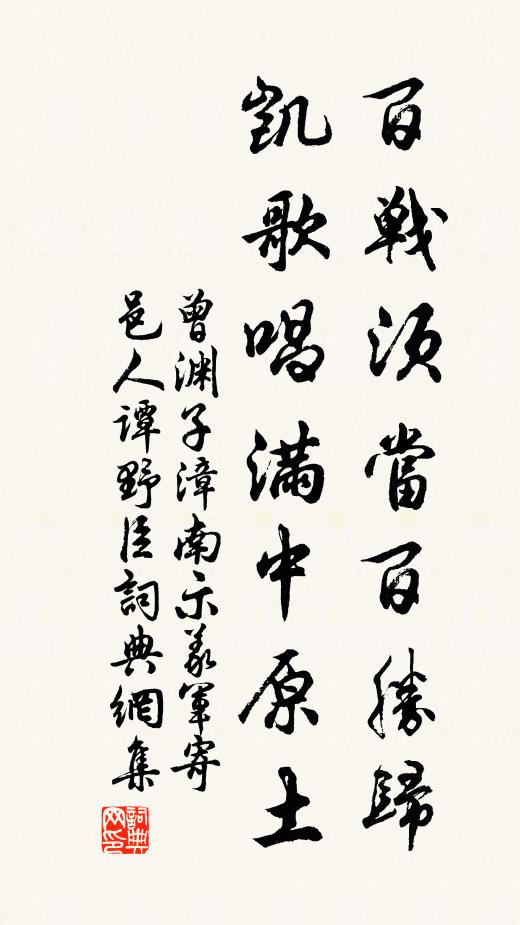 百戰須當百勝歸
凱歌唱滿中原土
曾淵子漳南示義軍寄
邑人譚野臣詞典網集
詞典網印